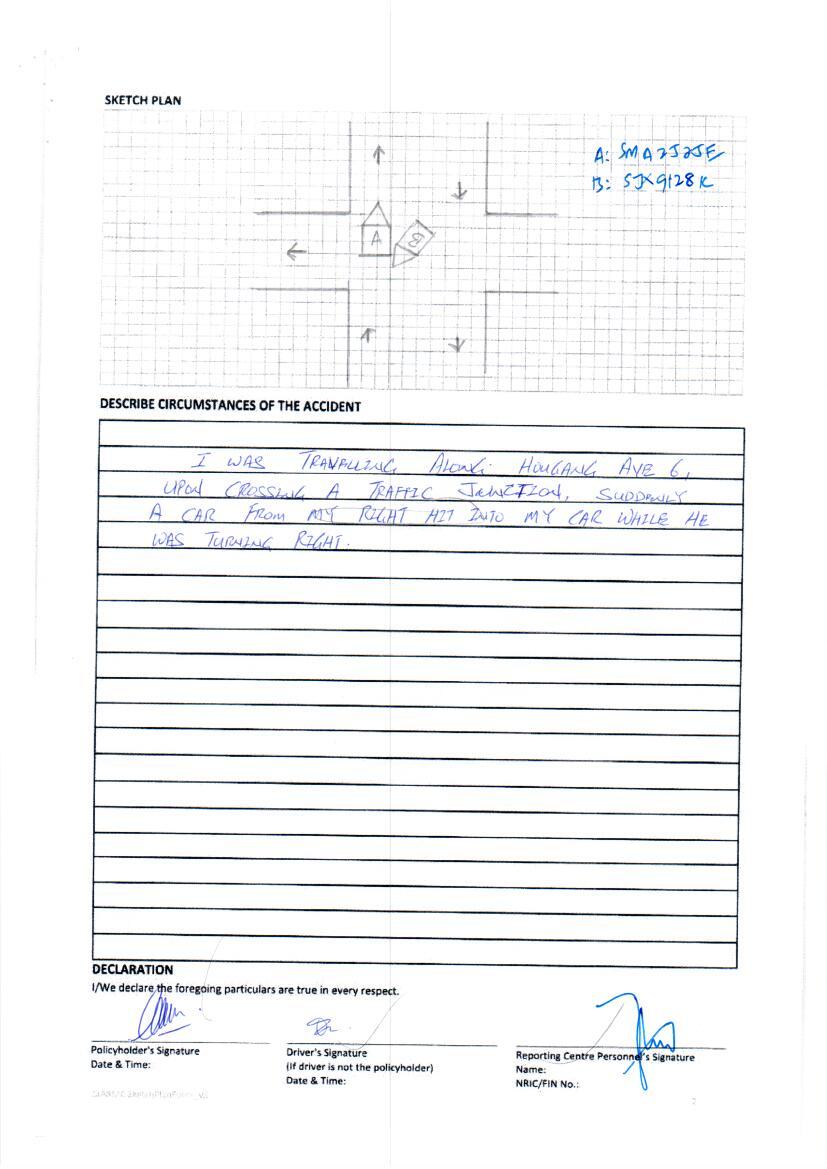 SKETCH PLAN
A: SMA2525E
B: SJX9128K
A
B
DESCRIBE CIRCUMSTANCES OF THE ACCIDENT
I WAS TRAVELLING ALONG HOUGANG AVE 6,
UPON CROSSING A TRAFFIC JUNCTION, SUDDENLY
A CAR FROM MY RIGHT HIT INTO MY CAR WHILE HE
WAS TURNING RIGHT.
DECLARATION
I/We declare the foregoing particulars are true in every respect.
Policyholder's Signature
Date & Time:
Driver's Signature
(If driver is not the policyholder)
Date & Time:
Reporting Centre Personnel's Signature
Name:
NRIC/FIN No.:
2